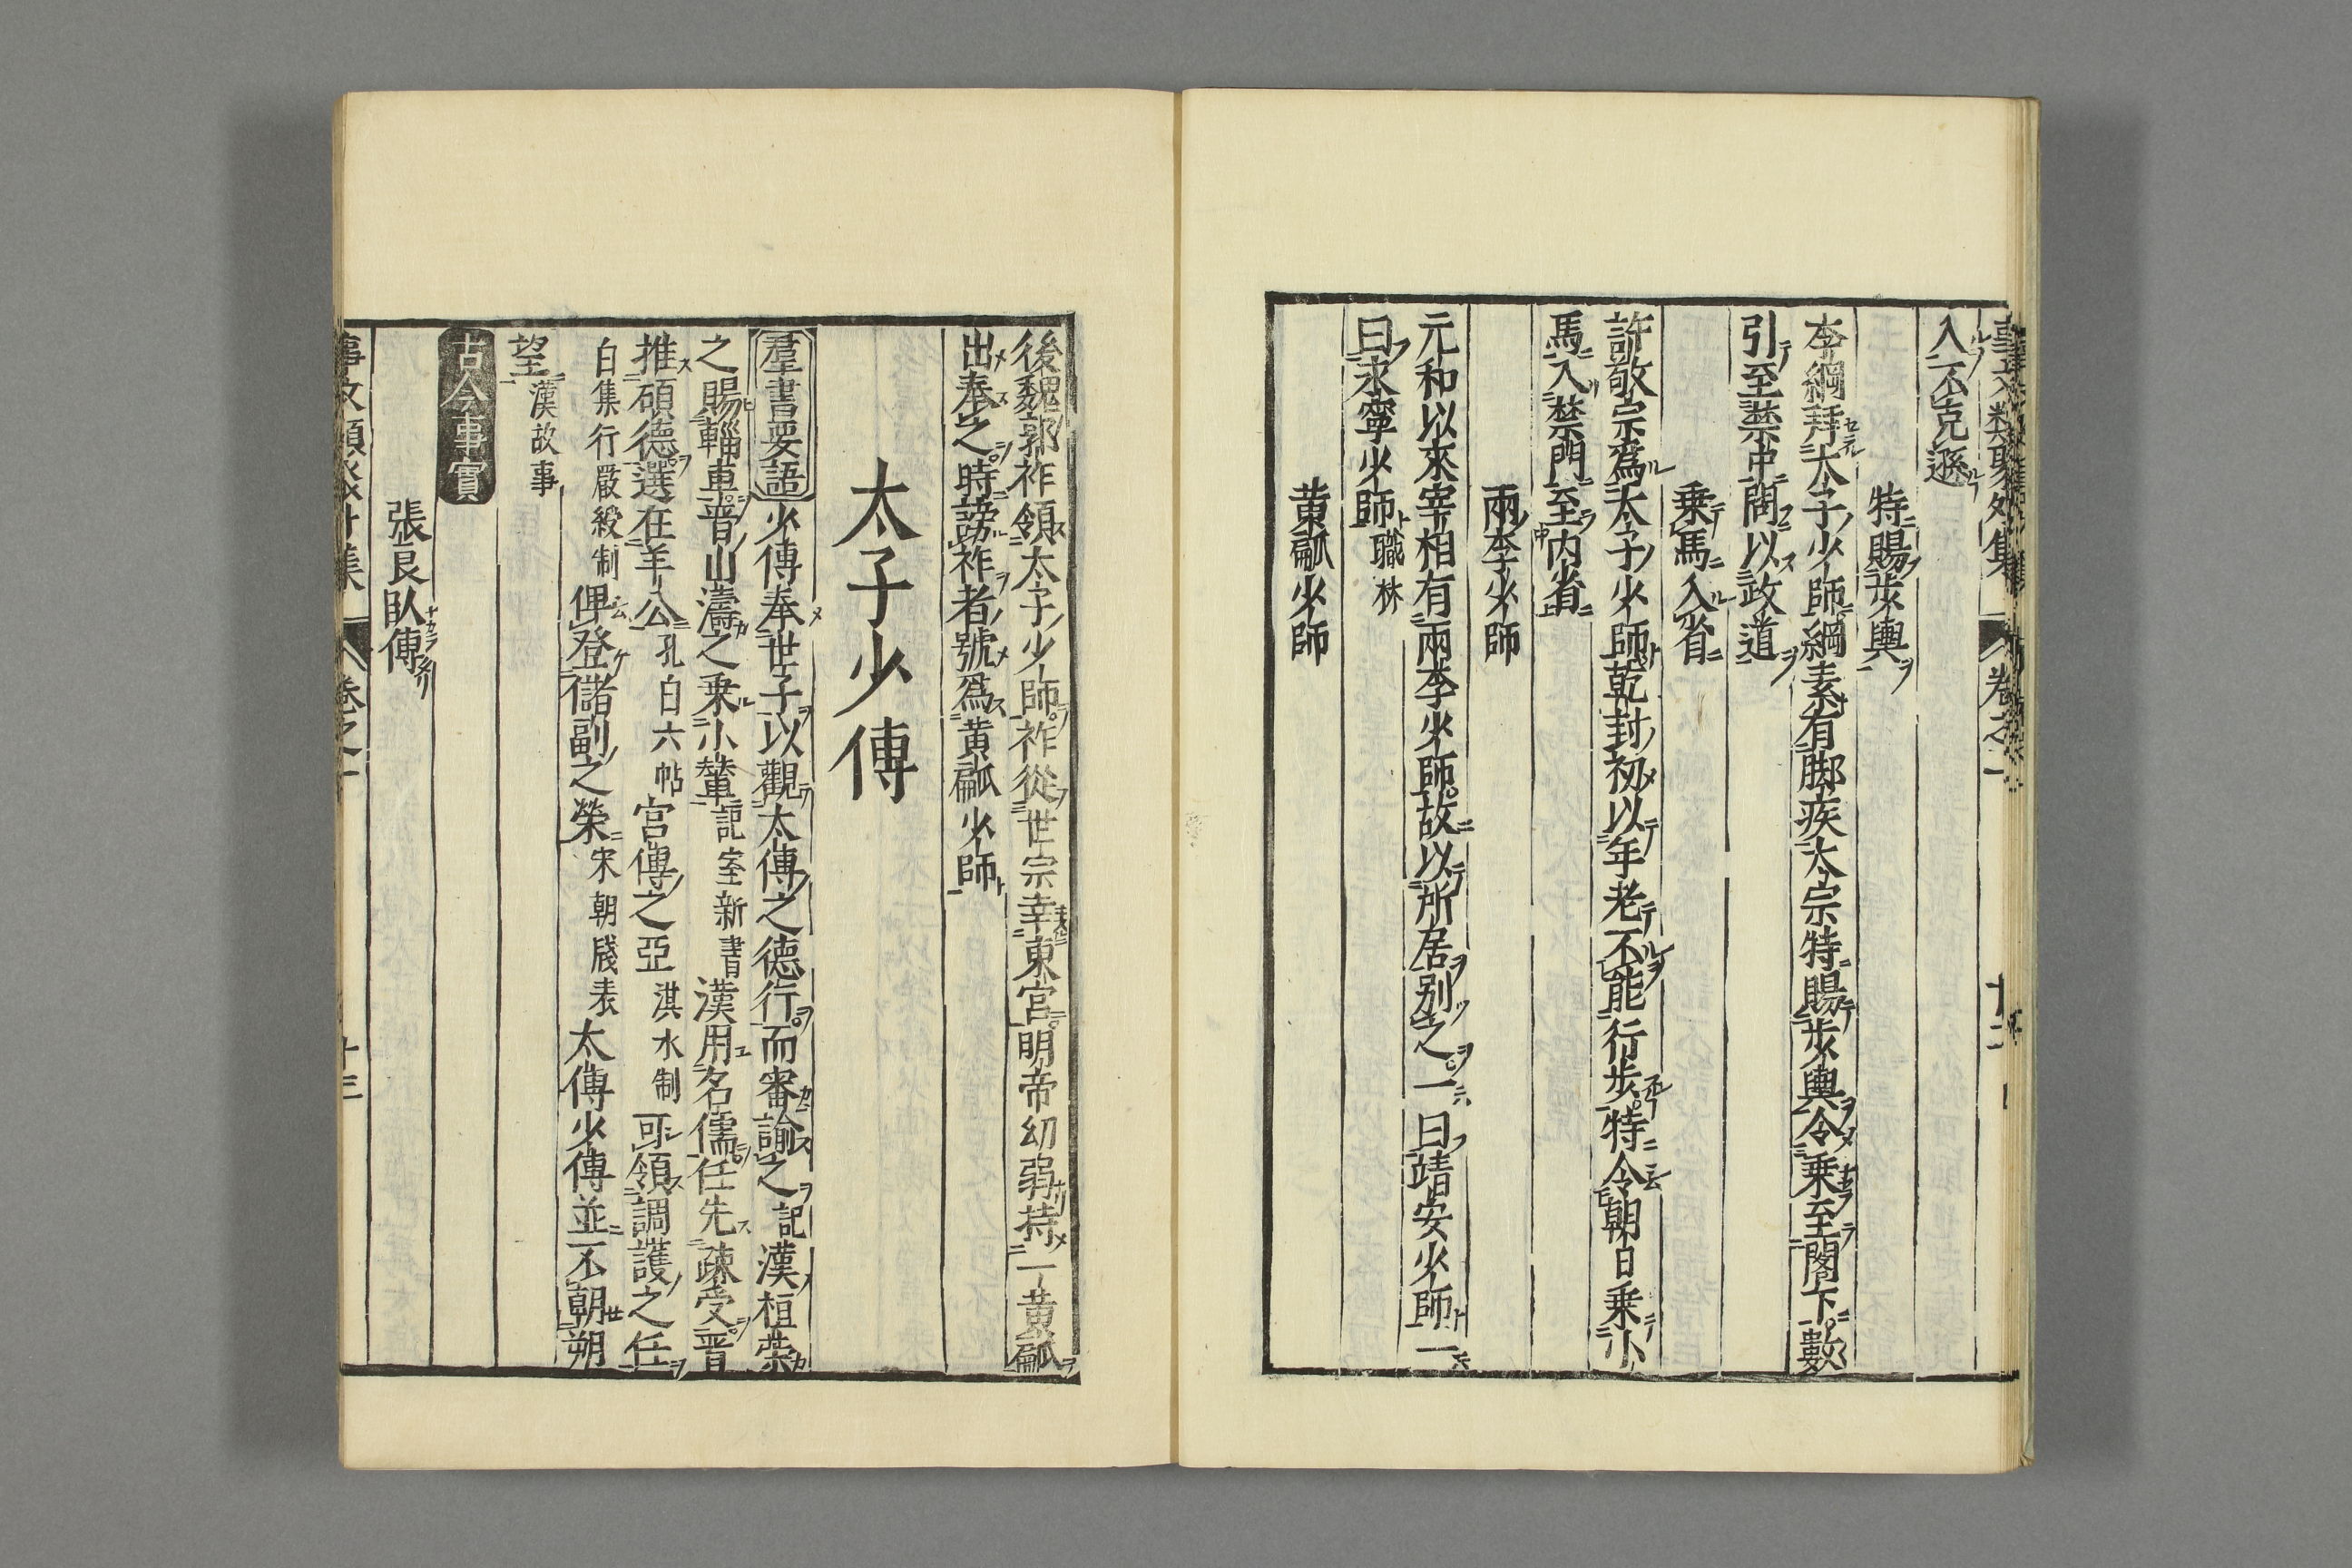 事文類聚外集 卷之一 十二
入不克遜
特賜步輿
李綱拜太子少師綱素有脚疾太宗特賜步輿令乘至閣下數
引至禁中問以政道
乘馬入省
許敬宗爲太子少師乾封初以年老不能行步特令朝日乘小
馬入禁門至內省
兩李少師
元和以來宰相有兩李少師故以所居別之一曰靖安少師一
曰永寧少師職林
黃㼐少師
後魏郭祚領太子少師祚從世宗幸東宮明帝幼弱持一黃㼐
出奉之時謗祚者號爲黃㼐少師
太子少傅
羣書要語 少傅奉世子以觀太傅之德行而審諭之記漢桓榮
之賜輜車晉山濤之乘小輦記室新書漢用名儒任先疎受晉
推碩德選在羊公孔白六帖宮傅之亞淇水制可領調護之任
白集行嚴綬制俾登儲副之榮宋朝牋表太傅少傅並不朝朔
望漢故事
古今事實
張良臥傅
事文類聚外集 卷之一 十三